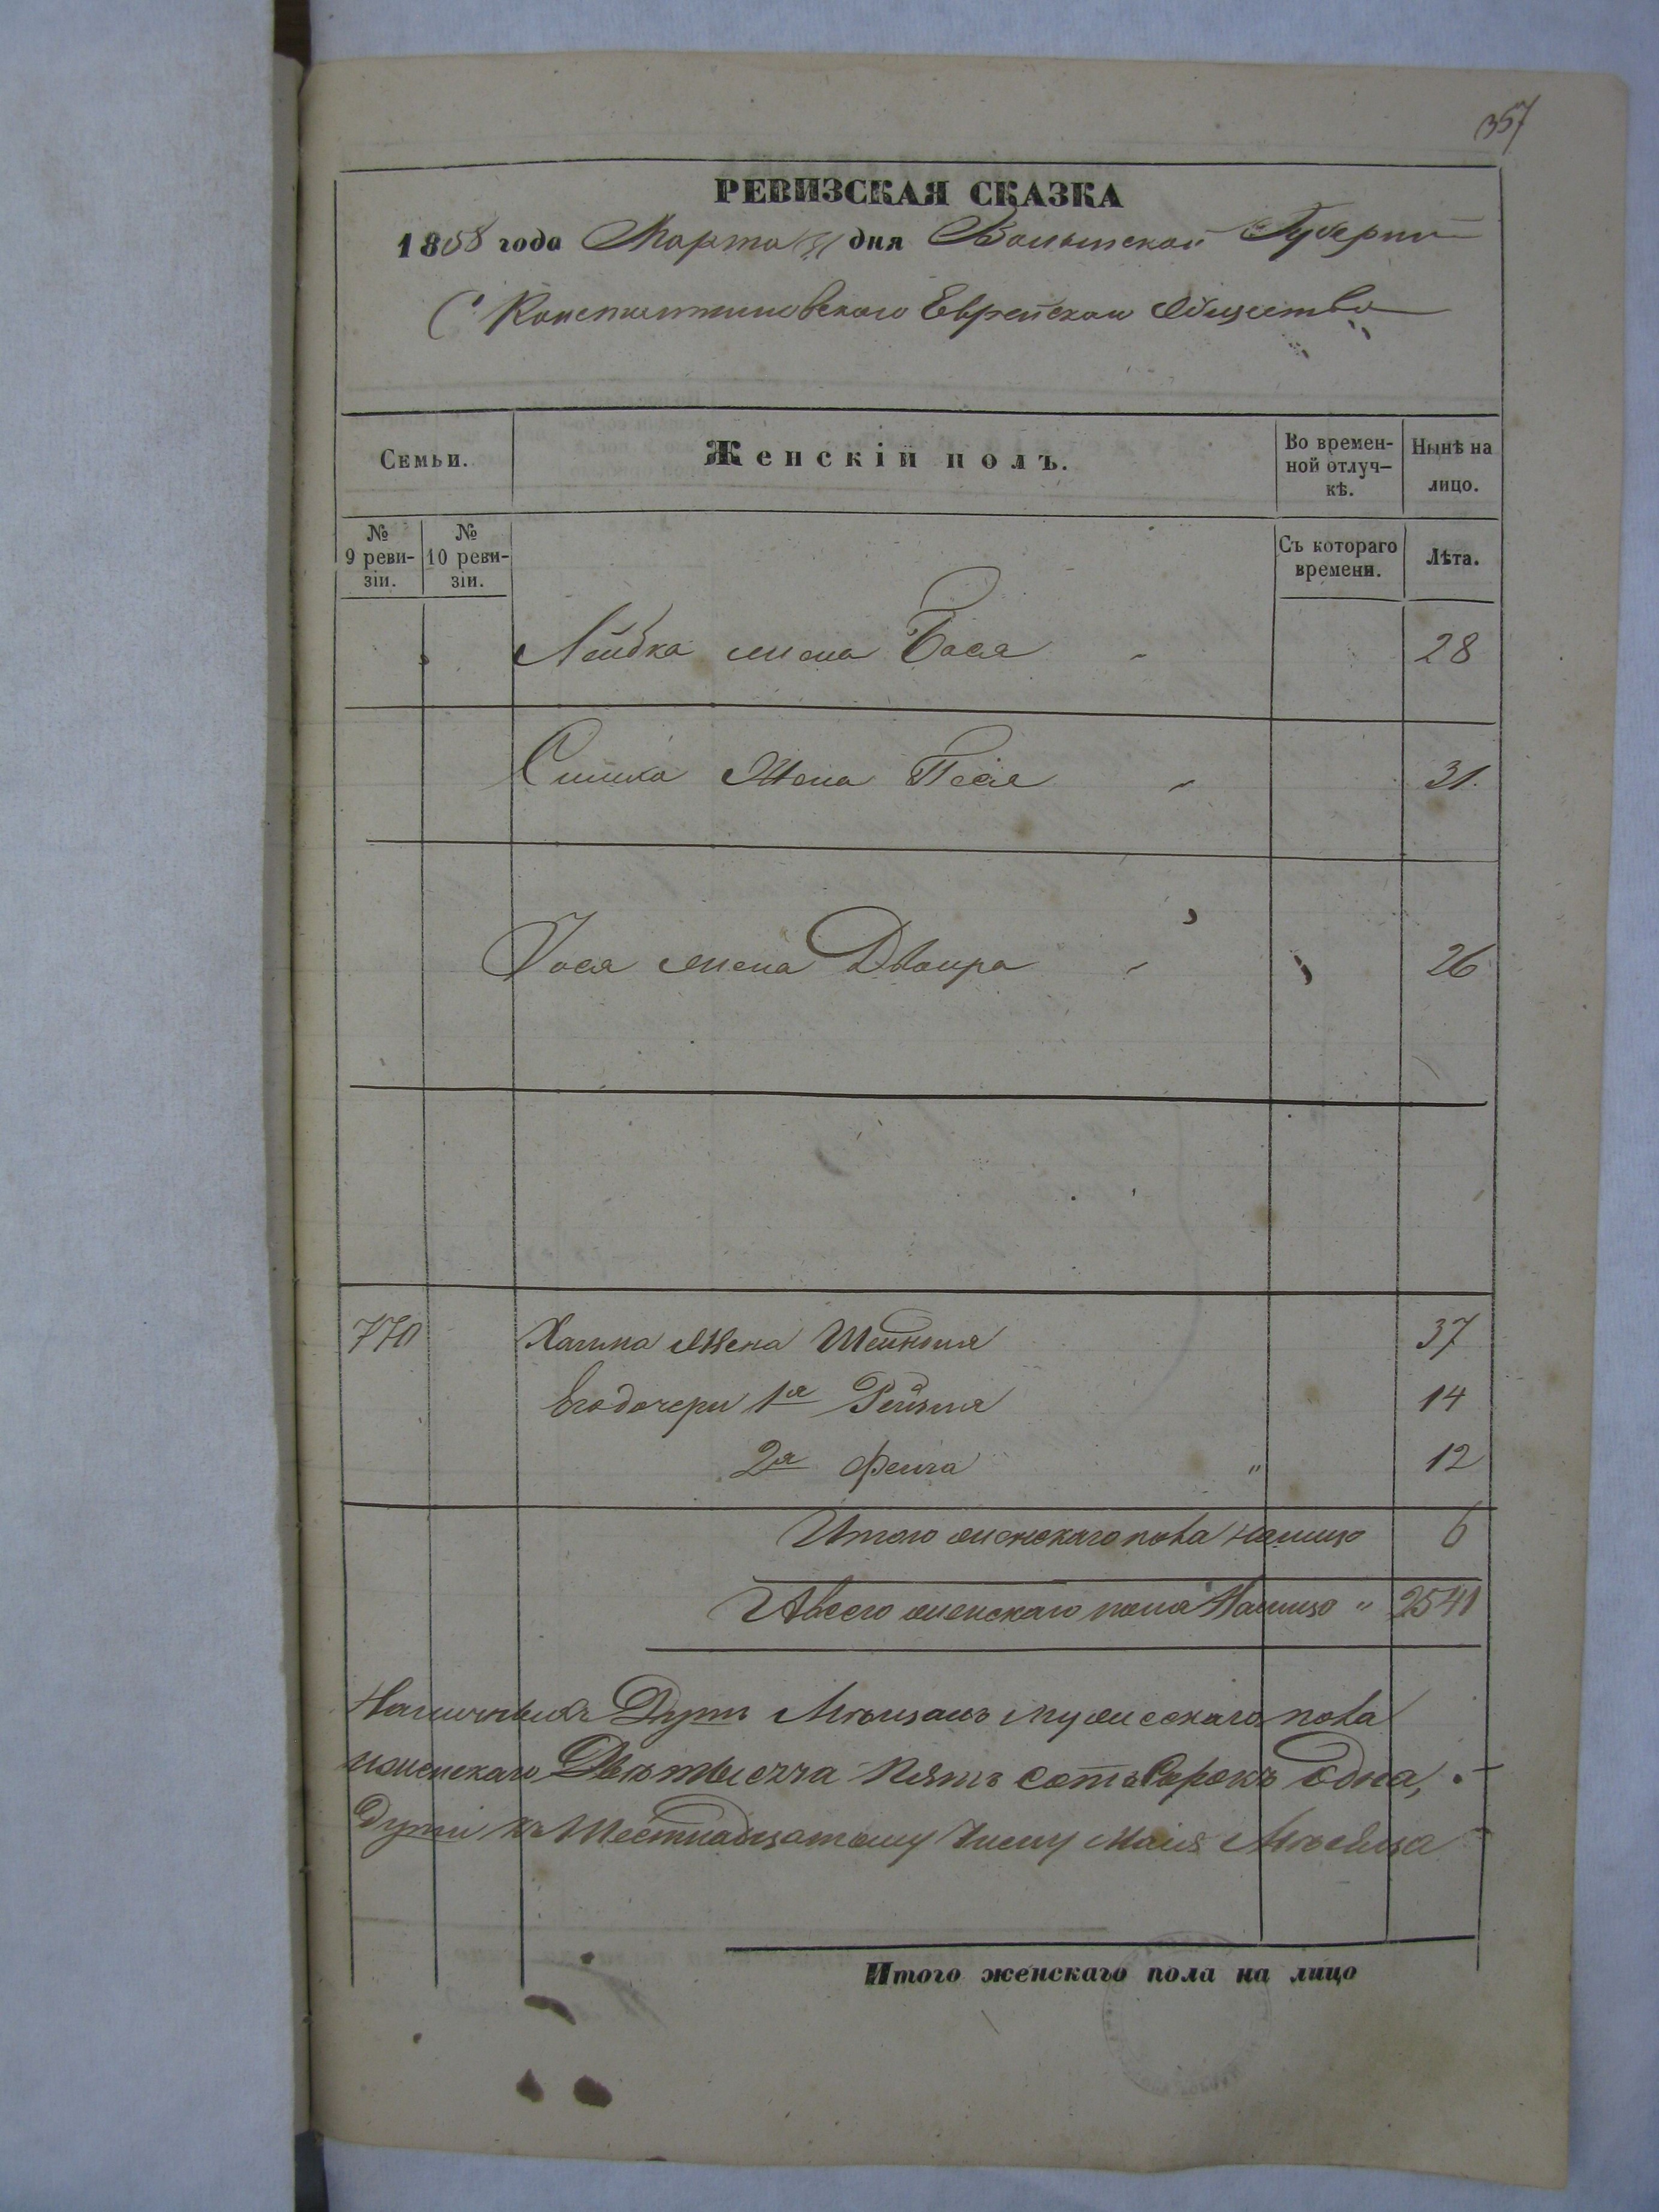 357
РЕВИЗСКАЯ СКАЗКА
1858 года Марта 31 дня Волынской Губернии
С. Константиновского Еврейскаго Общества
Семьи.
Женскій полъ.
Во времен-
ной отлуч-
кѣ.
Нынѣ на
лицо.
№
9 реви-
зіи.
№
10 реви-
зіи.
Съ котораго
времени.
Лѣта.
Лейбка жена Бася 28
жена Песя 31.
Иося жена Двойра 26
770 Хаима Жена Шейндля 37
Его дочери 1я Рейзля 14
2я Фейга " 12
Итого женскаго пола налицо 6
А всего женскаго пола Налицо " 2541
Наличныхъ Душъ Мѣщанъ мужескаго пола
и женскаго Двѣ тысяча Пять сотъ Сорокъ Одна,
Души къ Шестнадцатому Числу Маія Мѣсяца
Итого женскаго пола на лицо